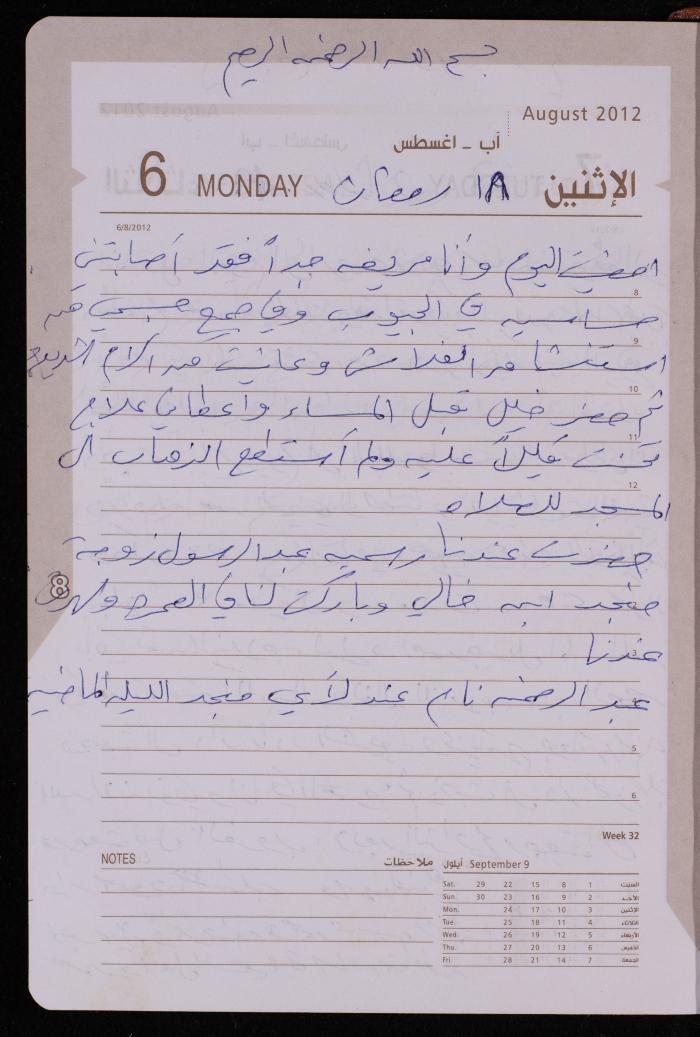 بسم الله الرحمن الرحيم
August 2012
آب - اغسطس
6 MONDAY ١٨ رمضان الإثنين
6/8/2012
امضيت اليوم وأنا مريضه جداً فقد أصابتني
8
حساسيه في الجيوب وفي جميع جسمي من
9
استنشاق الفلاش وعانيت من آلام
10
ثم حضر خليل قبل المساء واعطاني علاج
11
تحسنت قليلاً عليه ولم أستطع الذهاب الى
12
المسجد للصلاه
حضرت عندنا رسميه عبد الرسول زوجة
منجد ابن خالي وباركت لنا في العمره
8
عندنا
3
عبد الرحمن نام عند لأي منجد الليله الماضيه
5
6
Week 32
NOTES ملاحظات
September 9 أيلول
Sat. 29 22 15 8 1 السبت
Sun. 30 23 16 9 2 الأحد
Mon. 24 17 10 3 الإثنين
Tue. 25 18 11 4 الثلاثاء
Wed. 26 19 12 5 الأربعاء
Thu. 27 20 13 6 الخميس
Fri. 28 21 14 7 الجمعة